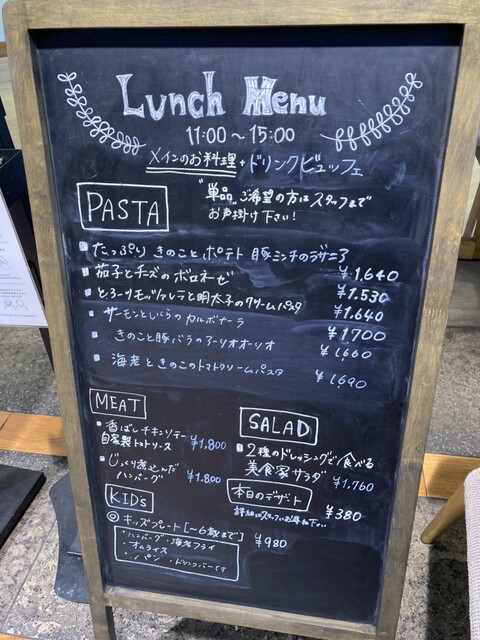 Lunch Menu
11:00～15:00
メインのお料理+ドリンクビュッフェ
PASTA
"単品"ご希望の方はスタッフまで
お声掛け下さい!
たっぷりきのことポテト 豚ミンチのラザニア ¥1,640
茄子とチーズのボロネーゼ ¥1,530
とろーりモッツァレラと明太子のクリームパスタ ¥1,640
サーモンといくらのカルボナーラ ¥1700
きのこと豚バラのアーリオオーリオ ¥1660
海老ときのこのトマトクリームパスタ ¥1690
MEAT
香ばしチキンソテー
自家製トマトソース ¥1,800
じっくり煮込んだ
ハンバーグ ¥1,800
SALAD
2種のドレッシングで食べる
美食家サラダ ¥1,760
本日のデザート ¥380
詳細はスタッフにお尋ね下さい
KIDs
◎キッズプレート[~6歳まで] ¥980
・ハンバーグ・海老フライ
・オムライス
・パン ・ドリンクバーです